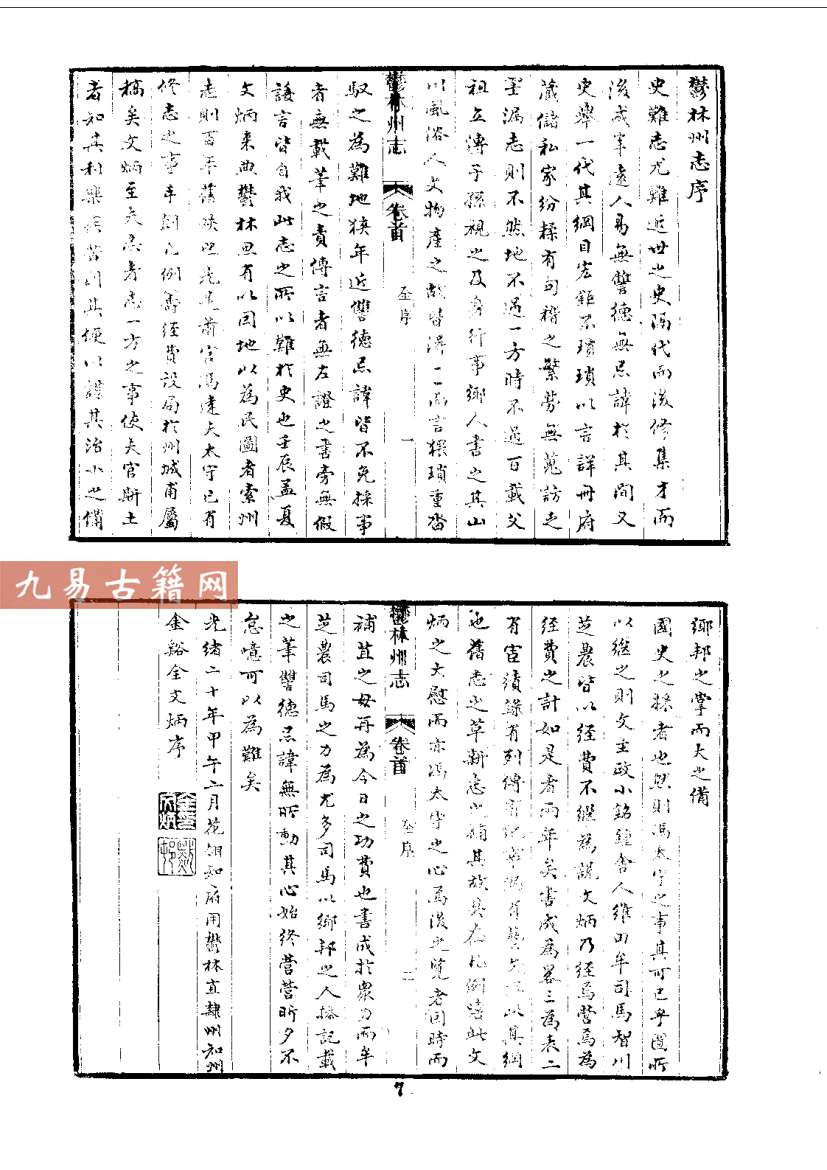 鬱林州志序
史難志尤難近世之史隔代而後修集才而
後成年遠人易無讐德無忌諱於其間又
史舉一代其綱目宏雖不瑣瑣以言詳冊府
藏儲私家紛揉有勾稽之繁勞無蒐訪之
罣漏志則不然地不過一方時不過百載父
祖立傳子孫視之及身行事鄉人書之其山
川風俗人文物產之故皆得一一而言猥瑣重沓
鬱林州志
卷首
全序
一
馭之為難地狹年近讐德忌諱皆不免採事
者無載筆之責傳言者無左證之書旁無假
議言皆自我此志之所以難於史也壬辰孟夏
文炳來典鬱林思有以因地以為民圖者索州
志則百年舊
前官馮達夫太守已有
修志之事手創凡例籌經費設局於州城甫屬
稿矣文炳至
志者志一方之事使夫官斯土
者知其利樂疾苦
其便以
其治小之備
鄉邦之掌而大之備
國史之採者也然則馮太守之事其可已乎
所
以繼之則文主政小銘鐘舍人維田牟司馬智川
芝農皆以經費不繼為
文炳乃經焉營焉為
經費之計如是者兩年矣書成為畧三為表二
有宦績錄有列傳有紀事
有藝文
以其綱
也舊志之草新志之補其故具在凡例
此文
炳之大慰而亦馮太守之心焉後之覽者同時而
鬱林州志
卷首
全序
二
補苴之毋再為今日之功費也書成於眾力而牟
芝農司馬之力為尤多司馬以鄉邦之人操記載
之筆讐德忌諱無所動其心始終營營昕夕不
怠噫可以為難矣
光緒二十年甲午二月花翎知府用鬱林直隸州知州
金谿全文炳序
7
九易古籍网